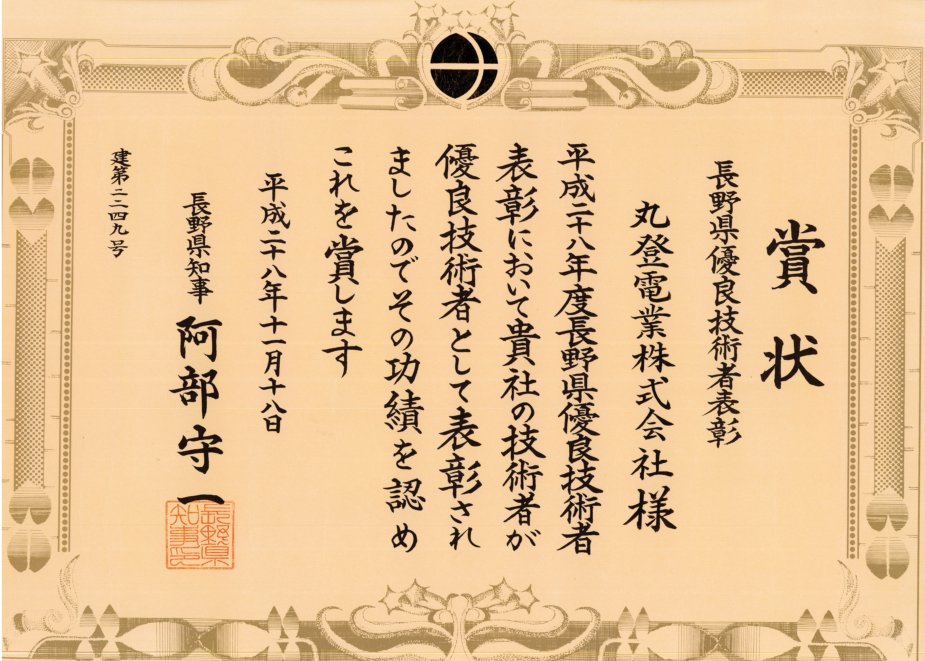 賞状
長野県優良技術者表彰
丸登電業株式会社様
平成二十八年度長野県優良技術者
表彰において貴社の技術者が
優良技術者として表彰され
ましたのでその功績を認め
これを賞します
平成二十八年十一月十八日
長野県知事 阿部守一
長野県知事印
建第二二四九号